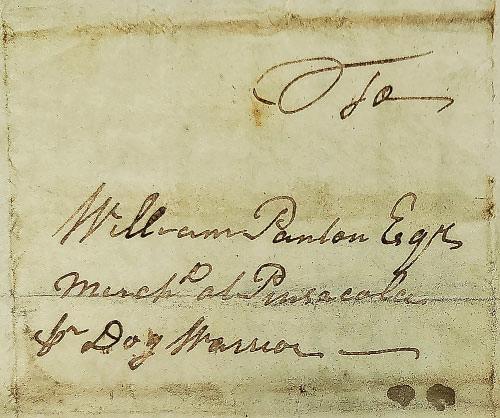 To
William Panton Esqr
Merch.t at Pensacola
pr Dog Warrior